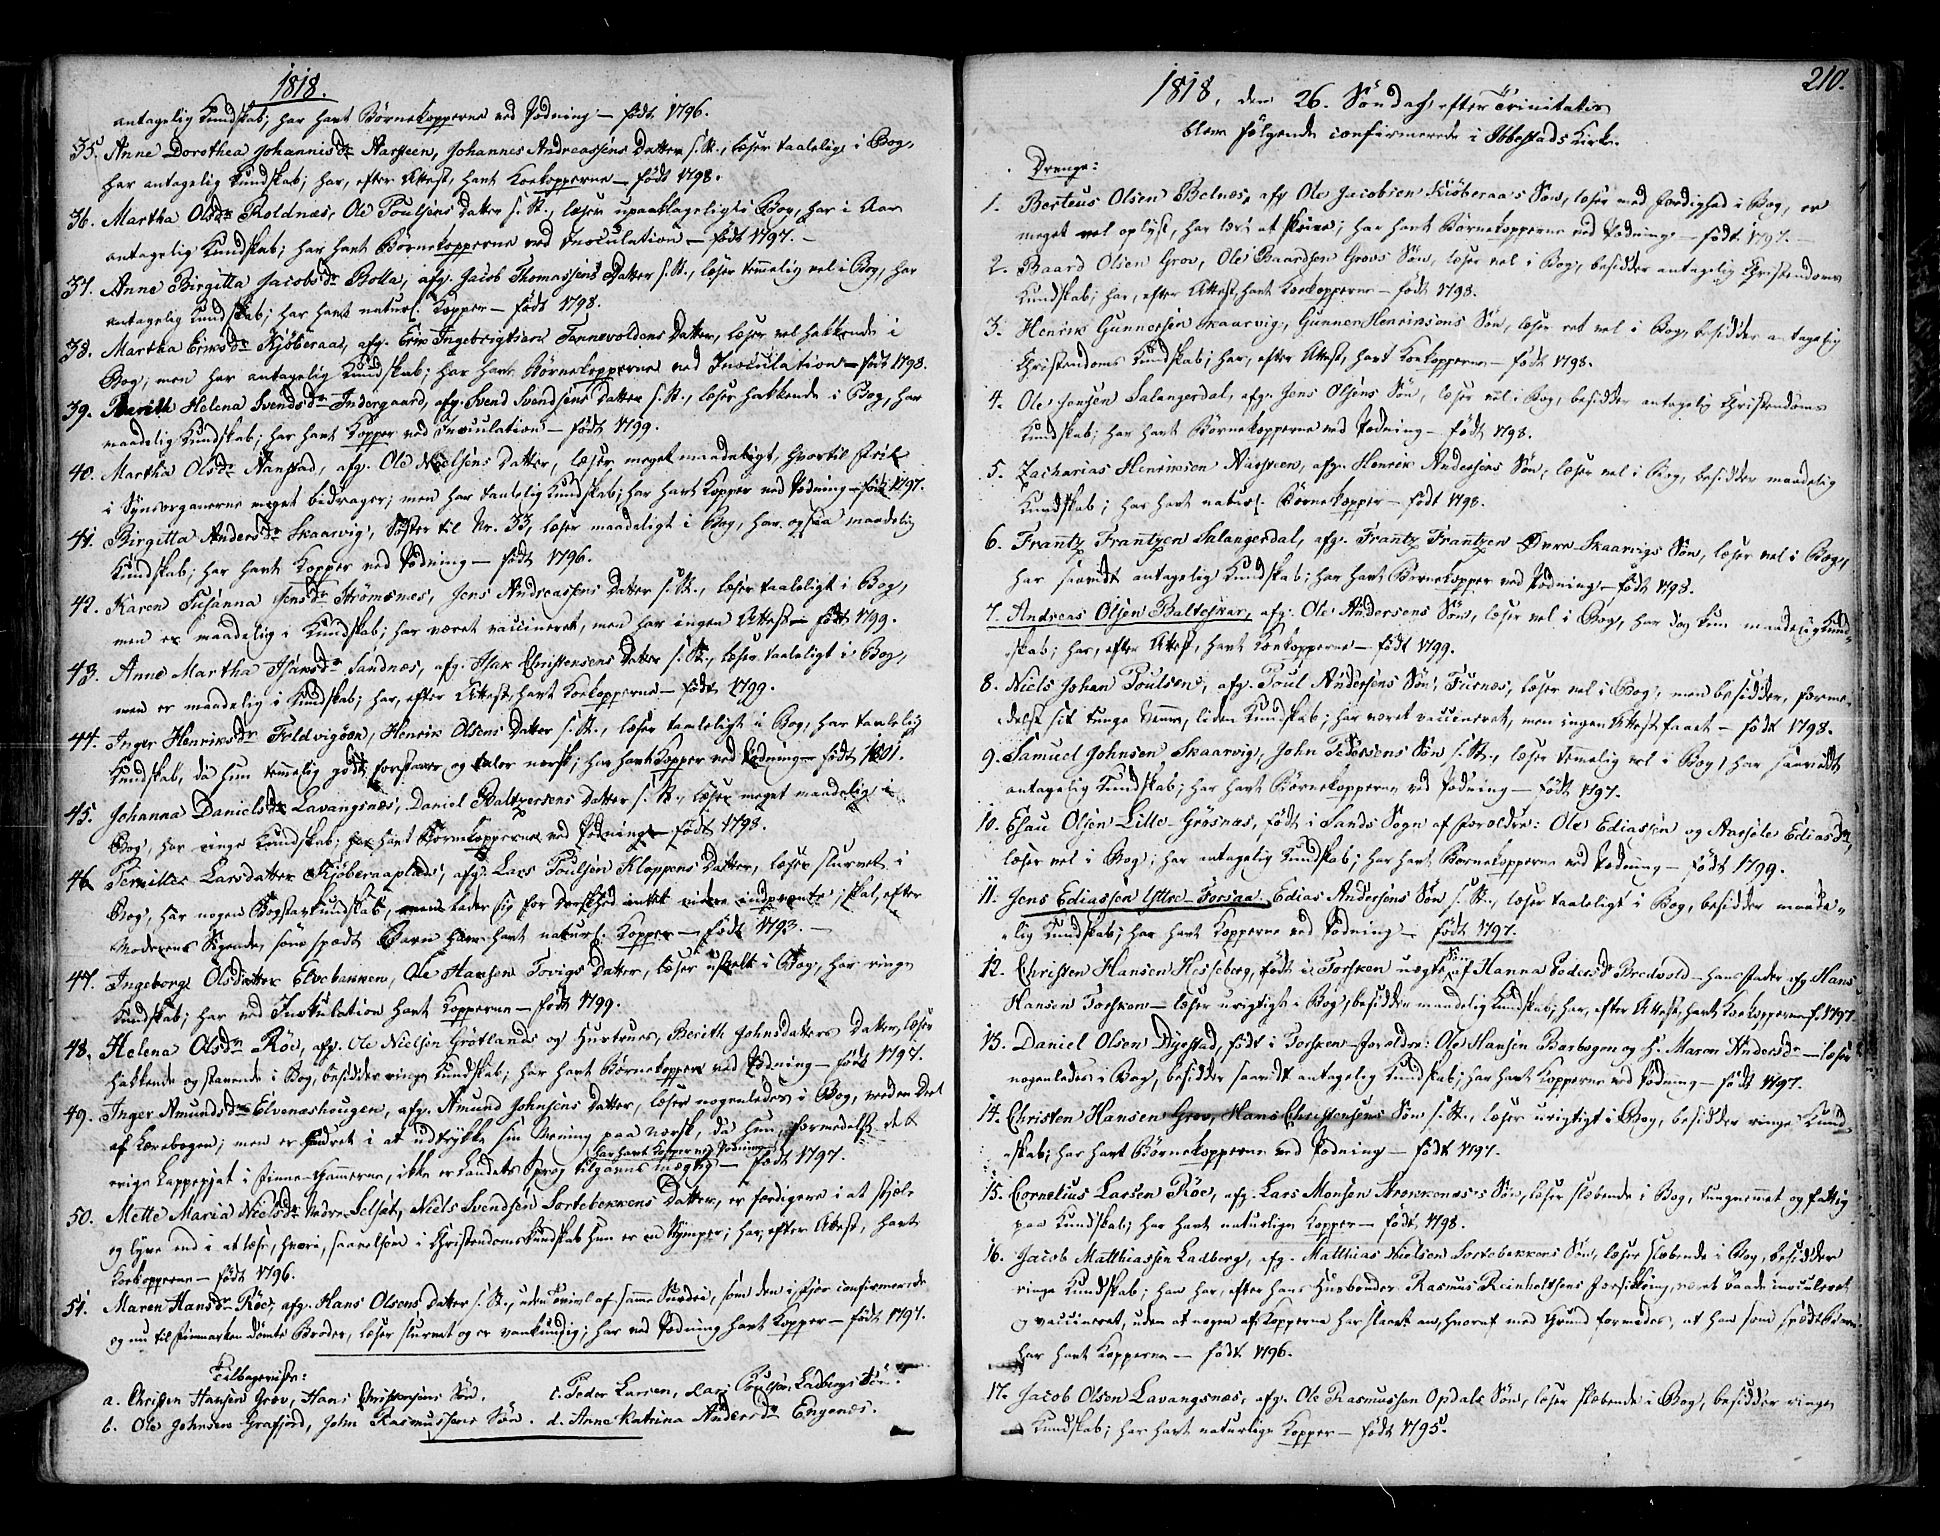 1818.
antagelig Kundskab; har havt Børnekopperne ved Podning — født 1796.
35. Anne Dorothea Johannisdr Aarsteen, Johannes Andreassens Datter s. St., læser taaleligt i Bog,
har antagelig Kundskab; har, efter Attest, havt Koekopperne — født 1798.
36. Martha Olsdr Roldnæs, Ole Poulsens Datter s. St., læser upaaklageligt i Bog, har i Aar
antagelig Kundskab; har havt Børnekopperne ved Inoculation — født 1797. —
37. Anne Birgitta Jacobsdr Bolla, afg. Jacob Thomassens Datter s. St., læser temmelig vel i Bog, har
antagelig Kundskab; har havt naturl. Kopper — født 1798.
38. Martha Ericsdr Kjøberaa, afg. Eric Ingebrigtsens Tennevoldens Datter, læser vel hakkende i
Bog, men har antagelig Kundskab; har havt Børnekopperne ved Inoculation — født 1798.
39. Berith Helena Svendsdr Indergaard, afg. Svend Svendsens Datter s. St., læser hakkende i Bog, har
maadelig Kundskab; har havt Kopper ved Inoculation — født 1799.
40. Martha Olsdr Aanstad, afg. Ole Nielsens Datter, læser meget maadeligt, hvortil Feil
i Synsorganerne meget bidrager; men har taalelig Kundskab; har havt Kopper ved Podning — født 1797.
41. Birgitta Andersdr Skaarvig, Søster til Nr. 33, læser maadeligt i Bog, har ogsaa maadelig
Kundskab; har havt Kopper ved Podning — født 1796.
42. Karen Susanna Jensdr Strømsnes, Jens Andreassens Datter s. St., læser taaleligt i Bog,
men er maadelig i Kundskab; har været vaccineret, men har ingen Attest — født 1799.
43. Anne Martha Isaksdr Sandnæs, afg. Isak Christensens Datter s. St., læser taaleligt i Bog,
men er maadelig i Kundskab; har, efter Attest, havt Koekopperne — født 1799.
44. Inger Henriksdr Foldvigøen, Henrik Olsens Datter s. St., læser taaleligt i Bog, har taalelig
Kundskab, da hun temmelig godt forstaaer og taler norsk; har havt Kopper ved Podning — født 1801.
45. Johanna Danielsdr Lavangsnæs, Daniel Baltzersens Datter s. St., læser meget maadelig i
Bog, har ringe Kundskab; har havt Børnekopperne ved Podning — født 1798.
46. Pernille Larsdatter Kjøberaaplads, afg. Lars Poulsen Kloppens Datter, læser slurvet i
Bog, har nogen Bogstavkundskab, men lader sig for Dorskhed intet videre indprente, skal, efter
Moderens Sigende, som spædt Barn have havt naturl. Kopper — født 1793. —
47. Ingeborg Olsdatter Elvebakken, Ole Hansen Tovigs Datter, læser uselt i Bog, har ringe
Kundskab; har ved Inokulation havt Kopperne — født 1799.
48. Helena Olsdr Röe, afg. Ole Nielsen Grötlands og Hustrues, Berith Johnsdatters Datter, læser
hakkende og stavende i Bog, besidder ringe Kundskab; har havt Børnekopper ved Podning — født 1797.
49. Inger Amundsdr Elvenæshougen, afg. Amund Johnsens Datter, læser nogenledes i Bog, med en Deel
af Lærebogen; men er hindret i at udtrykke sin Mening paa norsk, da hun formedelst det
har havt Kopper ved Podning
evige Lappepjat i Finne-Gammerne, ikke er Landets Sprog tilgavns mægtig — født 1797.
50. Mette Maria Nielsdr Nedre Seljet, Niels Svendsen Sortebekkens Datter, er færdigere i at stjæle
og lyve end i at læse, hvori, saavelsom i Christendomskundskab hun er en Stymper; har, efter Attest, havt
Koekopperne — født 1796.
51. Maren Hansdr Röe, afg. Hans Olsens Datter s. St., uden Tvivl af samme Surdei, som den i fjor confirmerede
og nu til Finmarken dømte Broder, læser slurvet og er vankundig; har ved Podning havt Kopper — født 1797.
Tilbageviste:
a. Christen Hansen Grov, Hans Christensens Søn. c. Peder Larsen, Lars Poulsen Ladbergs Søn.
b. Ole Johnsen Grasfjord, John Rasmussens Søn. d. Anne Katrina Andersdr Engenæs.
210.
1818, den 26. Søndag efter Trinitatis
bleve følgende confirmerede i Ibbestads Kirke.
Drenge:
1. Berteus Olsen Belnes, afg. Ole Jacobsen Kiøberaa's Søn, læser med Færdighed i Bog, er
meget vel oplyst, har lært at skrive; har havt Børnekopperne ved Podning — født 1797. —
2. Baard Olsen Grov, Ole Baardsen Grovs Søn, læser vel i Bog, besidder antagelig Christendoms
Kundskab; har, efter Attest, havt Koekopperne — født 1798.
3. Henrik Gunnersen Skaarvig, Gunner Henriksens Søn, læser ret vel i Bog, besidder antagelig
Christendoms Kundskab; har, efter Attest, havt Koekopperne — født 1798.
4. Ole Jensen Salangerdal, afg. Jens Olsens Søn, læser vel i Bog, besidder antagelig Christendoms
Kundskab; har havt Børnekopperne ved Podning — født 1798.
5. Zacharias Henriksen Aarsteen, afg. Henrik Andersens Søn, læser vel i Bog, besidder maadelig
Kundskab; har havt naturl. Børnekopper — født 1798.
6. Frantz Frantzen Salangerdal, afg. Frantz Frantzen Øvre-Skaarvigs Søn, læser vel i Bog,
har saavidt antagelig Kundskab; har havt Børnekopper ved Podning — født 1798.
7. Andreas Olsen Balteskar, afg. Ole Andersens Søn, læser vel i Bog, har dog kun maadelig Kund-
skab; har, efter Attest, havt Koekopperne — født 1799.
8. Niels Johan Poulsen, afg. Poul Andersens Søn, Furnes, læser vel i Bog, men besidder, forme-
delst sit tunge Nemme, liden Kundskab; har været vaccineret, men ingen Attest faaet — født 1798.
9. Samuel Johnsen Skaarvig, John Pedersens Søn s. St., læser temmelig vel i Bog, har saavidt
antagelig Kundskab; har havt Børnekopperne ved Podning — født 1797.
10. Esau Olsen Lille Grøsnæs, født i Sands Sogn af Forældre: Ole Ediassen og Aasele Ediasdr,
læser vel i Bog; har antagelig Kundskab; har havt Børnekopperne ved Podning — født 1799.
11. Jens Ediassen Ystre-Forsaa, Edias Andersens Søn s. St., læser taaleligt i Bog, besidder maade-
lig Kundskab; har havt Kopperne ved Podning — født 1797.
12. Christen Hansen Hesseberg, født i Torsken uægte Søn af Hanna Pedersdr Bredvold — hans Fader afg. Hans
Hansen Torsken — læser urigtigt i Bog, besidder maadelig Kundskab; har, efter Attest, havt Koekopperne f. 1797
13. Daniel Olsen Dyrstad, født i Torsken Forældre: Ole Hansen Barbogen og H. Maren Andersdr — læser
nogenledes i Bog, besidder saavidt antagelig Kundskab; har havt Kopperne ved Podning — født 1797.
14. Christen Hansen Grov, Hans Christensens Søn s. St., læser urigtigt i Bog, besidder ringe Kund-
skab; har havt Børnekopperne ved Podning — født 1797.
15. Cornelius Larsen Röe, afg. Lars Monsen Krokkenæs's Søn, læser slæbende i Bog, tungnemmet og fattig
paa Kundskab; har havt naturlige Kopper — født 1798.
16. Jacob Matthiassen Ladberg, afg. Matthias Nielsen Sortebekkens Søn, læser slæbende i Bog, besidder
ringe Kundskab; han har, efter hans Huusbonds Rasmus Reinholtsens Forsikring, været baade inoculeret
og vaccineret, uden at nogen af Kopperne har slaaet an, hvoraf med Grund formodes, at han som spædt Barn
har havt Kopperne — født 1796.
17. Jacob Olsen Lavangsnæs, afg. Ole Rasmussen Opdals Søn, læser slæbende i Bog, besidder ringe
Kundskab; har havt naturlige Kopper — født 1795.